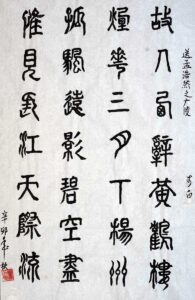 送孟浩然之广陵
李白
故人西辭黃鶴樓
煙華三月下楊州
孤帆遠影碧空盡
唯見長江天際流
辛卯年